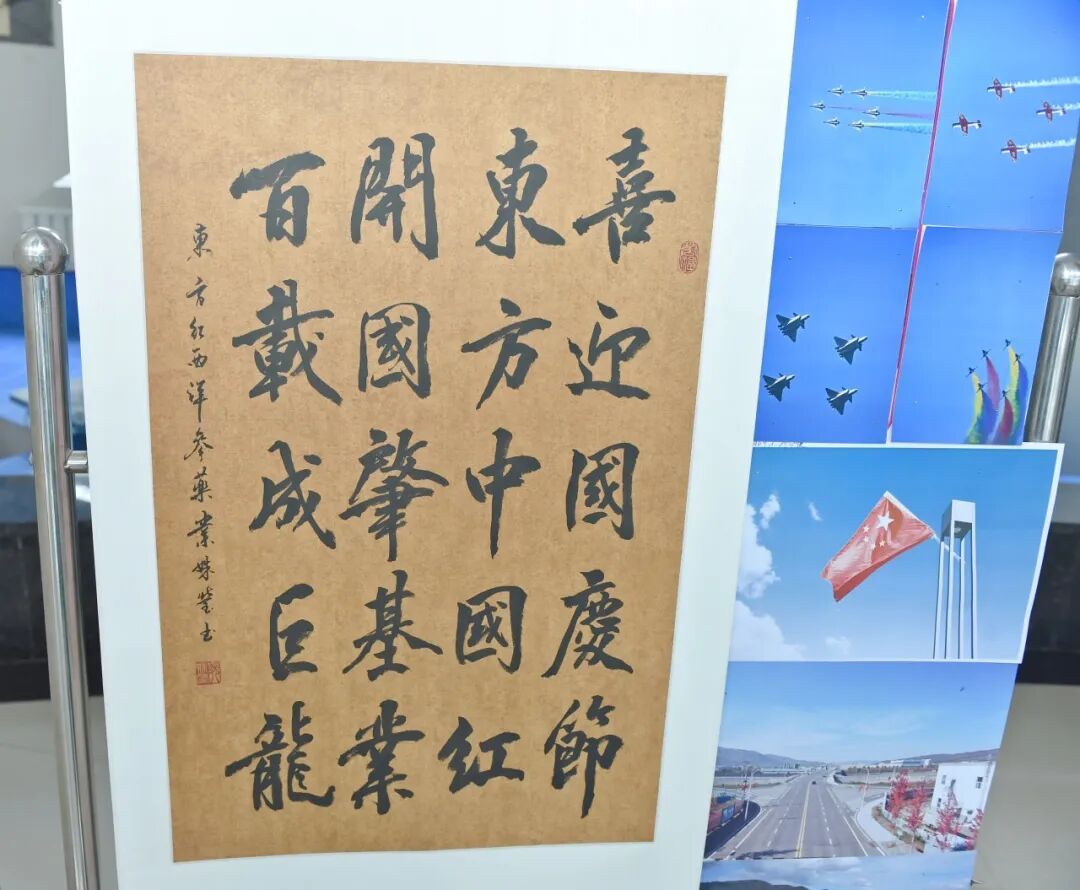 喜迎國慶節
東方中國紅
開國肇基業
百載成巨龍
東方红西洋參藥業姝莹书